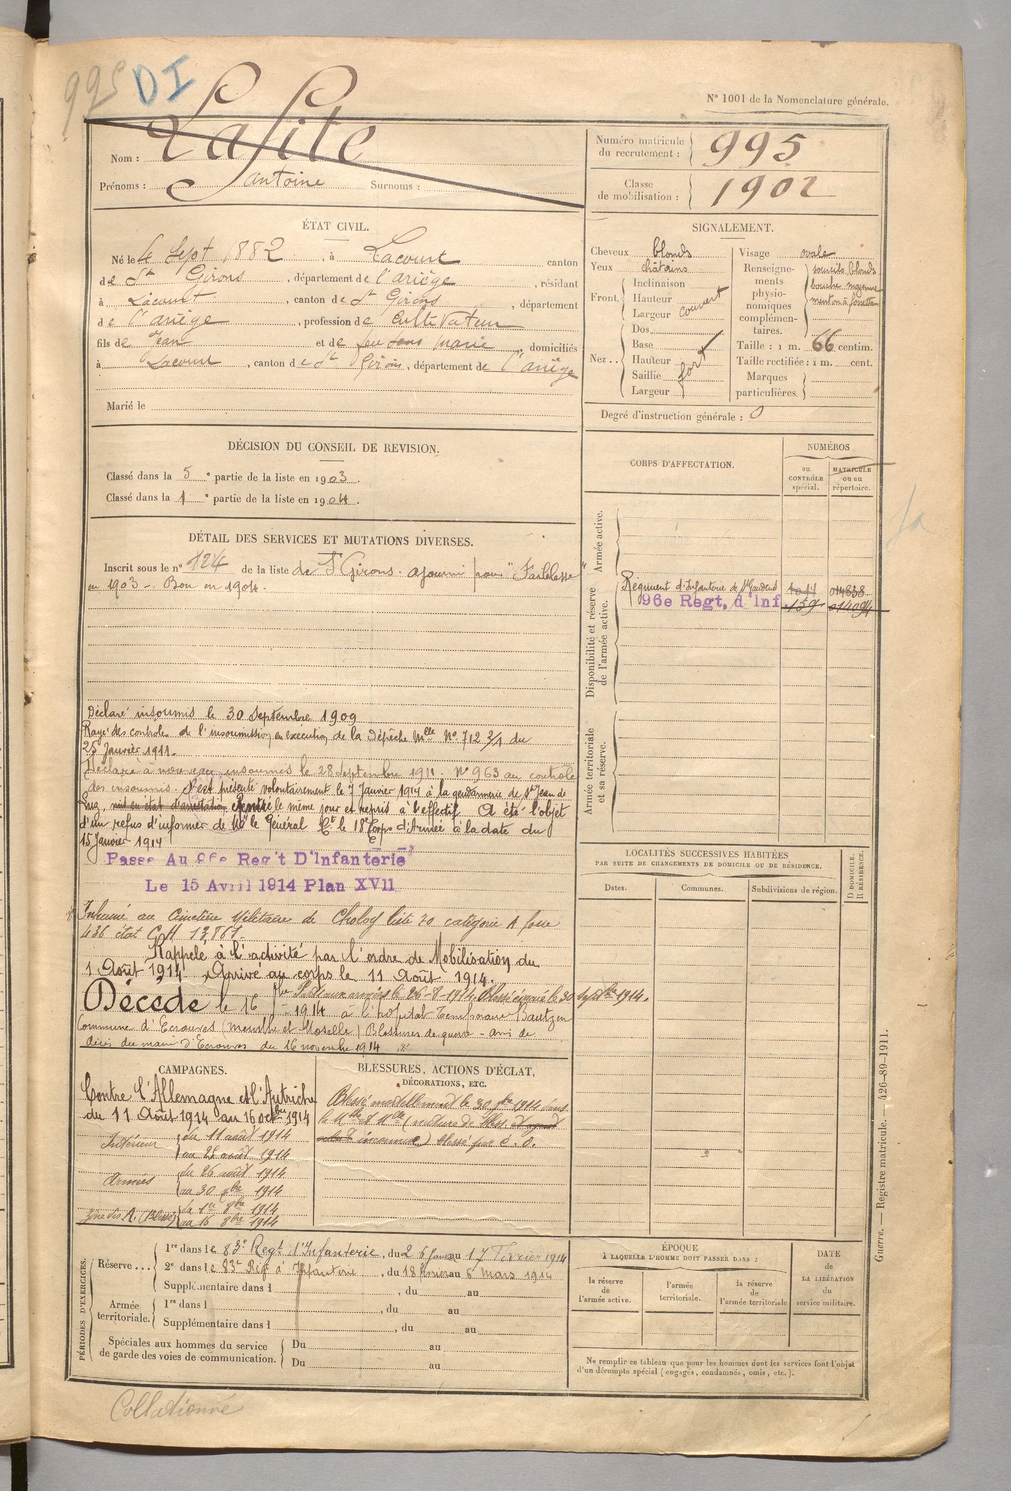 995 DI
N° 1001 de la Nomenclature générale.
Nom : Lafite
Prénoms : Antoine Surnoms :
Numéro matricule du recrutement : 995
Classe de mobilisation : 1902
ÉTAT CIVIL.
Né le 4 Sept 1882, à Lacourt canton
de St Girons, département de l'ariège, résidant
à Lacourt, canton de St Girons, département
de l'ariège, profession de cultivateur
fils de Jean et de feu Marie domiciliés
à Lacourt, canton de St Girons, département de l'ariège
Marié le
SIGNALEMENT.
Cheveux blonds
Yeux châtains
Front. Inclinaison
Hauteur
Largeur couvert
Nez . . Dos
Base
Hauteur
Saillie fort
Largeur
Visage ovale
Renseignements physionomiques complémentaires. sourcils blonds
bouche moyenne
menton à fossette
Taille : 1 m. 66 centim.
Taille rectifiée : 1 m. cent.
Marques particulières.
Degré d'instruction générale : 0
DÉCISION DU CONSEIL DE REVISION.
Classé dans la 5e partie de la liste en 1903.
Classé dans la 1e partie de la liste en 1904.
CORPS D'AFFECTATION.
NUMÉROS
au CONTRÔLE spécial.
MATRICULE ou au répertoire.
Armée active.
Disponibilité et réserve de l'armée active.
Régiment d'Infanterie de St Gaudens 014838
96e Regt, d'Inf 159 014094
Armée territoriale et sa réserve.
DÉTAIL DES SERVICES ET MUTATIONS DIVERSES.
Inscrit sous le n° 124 de la liste de St Girons. ajourné pour "Faiblesse"
en 1903 - Bon en 1904.
Déclaré insoumis le 30 Septembre 1909
Rayé des contrôles de l'insoumission en exécution de la Dépêche Mlle N° 712 3/4 du
25 Janvier 1911.
Déclaré à nouveau insoumis le 28 Septembre 1911. N° 963 au contrôle
des insoumis. S'est présenté volontairement le 7 Janvier 1914 à la gendarmerie de St Jean de
Luz, mis en état d'arrestation le même jour et repris à l'effectif. A été l'objet
d'un refus d'informer de Mr le Général Ct le 18e Corps d'Armée à la date du
15 Janvier 1914
Passe Au 96e Reg't D'Infanterie
Le 15 Avril 1914 Plan XVII
Inhumé au Cimetière Militaire de Choloy liste 20 catégorie A
436 état
Rappelé à l'activité par l'ordre de Mobilisation du
1 Août 1914. Arrivé au corps le 11 Août 1914.
Parti aux armées le 26-8-1914 Blessé le 30 septbre 1914.
Décédé le 16 1914 à l'hôpital temporaire Bautzen
Commune d'Ecrouves (Meurthe et Moselle) Blessures de guerre - avis de
décès du maire d'Ecrouves du 16 novembre 1914
LOCALITÉS SUCCESSIVES HABITÉES
PAR SUITE DE CHANGEMENTS DE DOMICILE OU DE RÉSIDENCE.
Dates.
Communes.
Subdivisions de région.
D DOMICILE. R RÉSIDENCE.
CAMPAGNES.
Contre l'Allemagne et l'Autriche
du 11 Août 1914 au 16 octbre 1914
Intérieur du 11 août 1914
au 25 août 1914
Armées du 26 août 1914
au 30 7bre 1914
Zne des A. (Blessé) du 1er 8bre 1914
au 16 8bre 1914
BLESSURES, ACTIONS D'ÉCLAT,
DÉCORATIONS, ETC.
Blessé mortellement le 30 7bre 1914 dans
blessé par é. o.
PÉRIODES D'EXERCICES.
Réserve . . . 1re dans le 83e Regt d'Infanterie, du 26 janv au 17 Février 1914
2e dans le 83e Regt d'Infanterie, du 18 février au 6 mars 1914
Supplémentaire dans l , du au
Armée territoriale. 1re dans l , du au
Supplémentaire dans l , du au
Spéciales aux hommes du service de garde des voies de communication. Du au
Du au
ÉPOQUE
À LAQUELLE L'HOMME DOIT PASSER DANS :
la réserve de l'armée active.
l'armée territoriale.
la réserve de l'armée territoriale
DATE de LA LIBÉRATION du service militaire.
Ne remplir ce tableau que pour les hommes dont les services font l'objet
d'un décompte spécial (engagés, condamnés, omis, etc.).
Guerre. — Registre matricule. — 426-89-1911.
Collationné